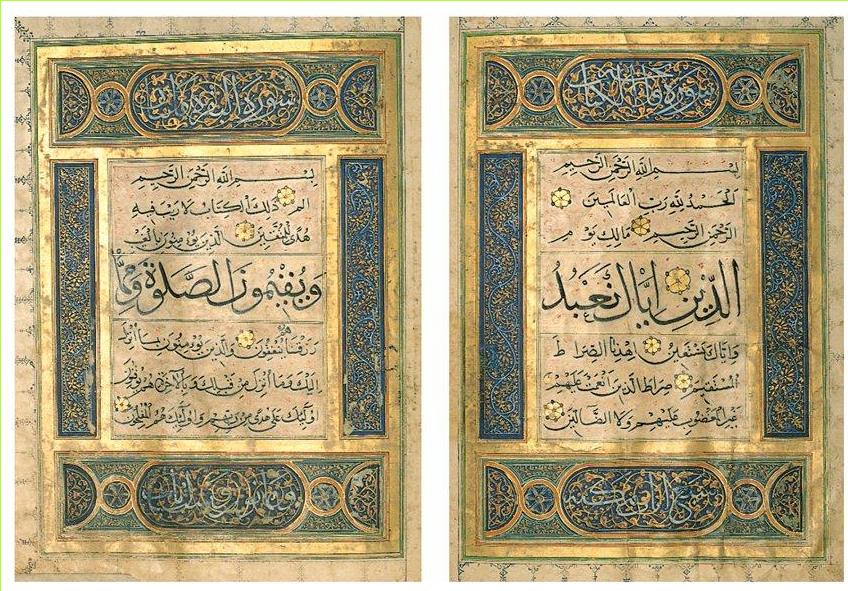 سورة فاتحة الكتاب
بسم الله الرحمن الرحيم
الحمد لله رب العالمين
الرحمن الرحيم مالك يوم
الدين اياك نعبد
واياك نستعين اهدنا الصراط
المستقيم صراط الذين انعمت عليهم
غير المغضوب عليهم ولا الضالين
سورة البقرة
بسم الله الرحمن الرحيم
الم ذلك الكتاب لا ريب فيه
هدى للمتقين الذين يؤمنون بالغيب
ويقيمون الصلوة ومما
رزقناهم ينفقون والذين يؤمنون بما انزل
اليك وما انزل من قبلك وبالاخرة هم يوقنون
اولئك على هدى من ربهم واولئك هم المفلحون